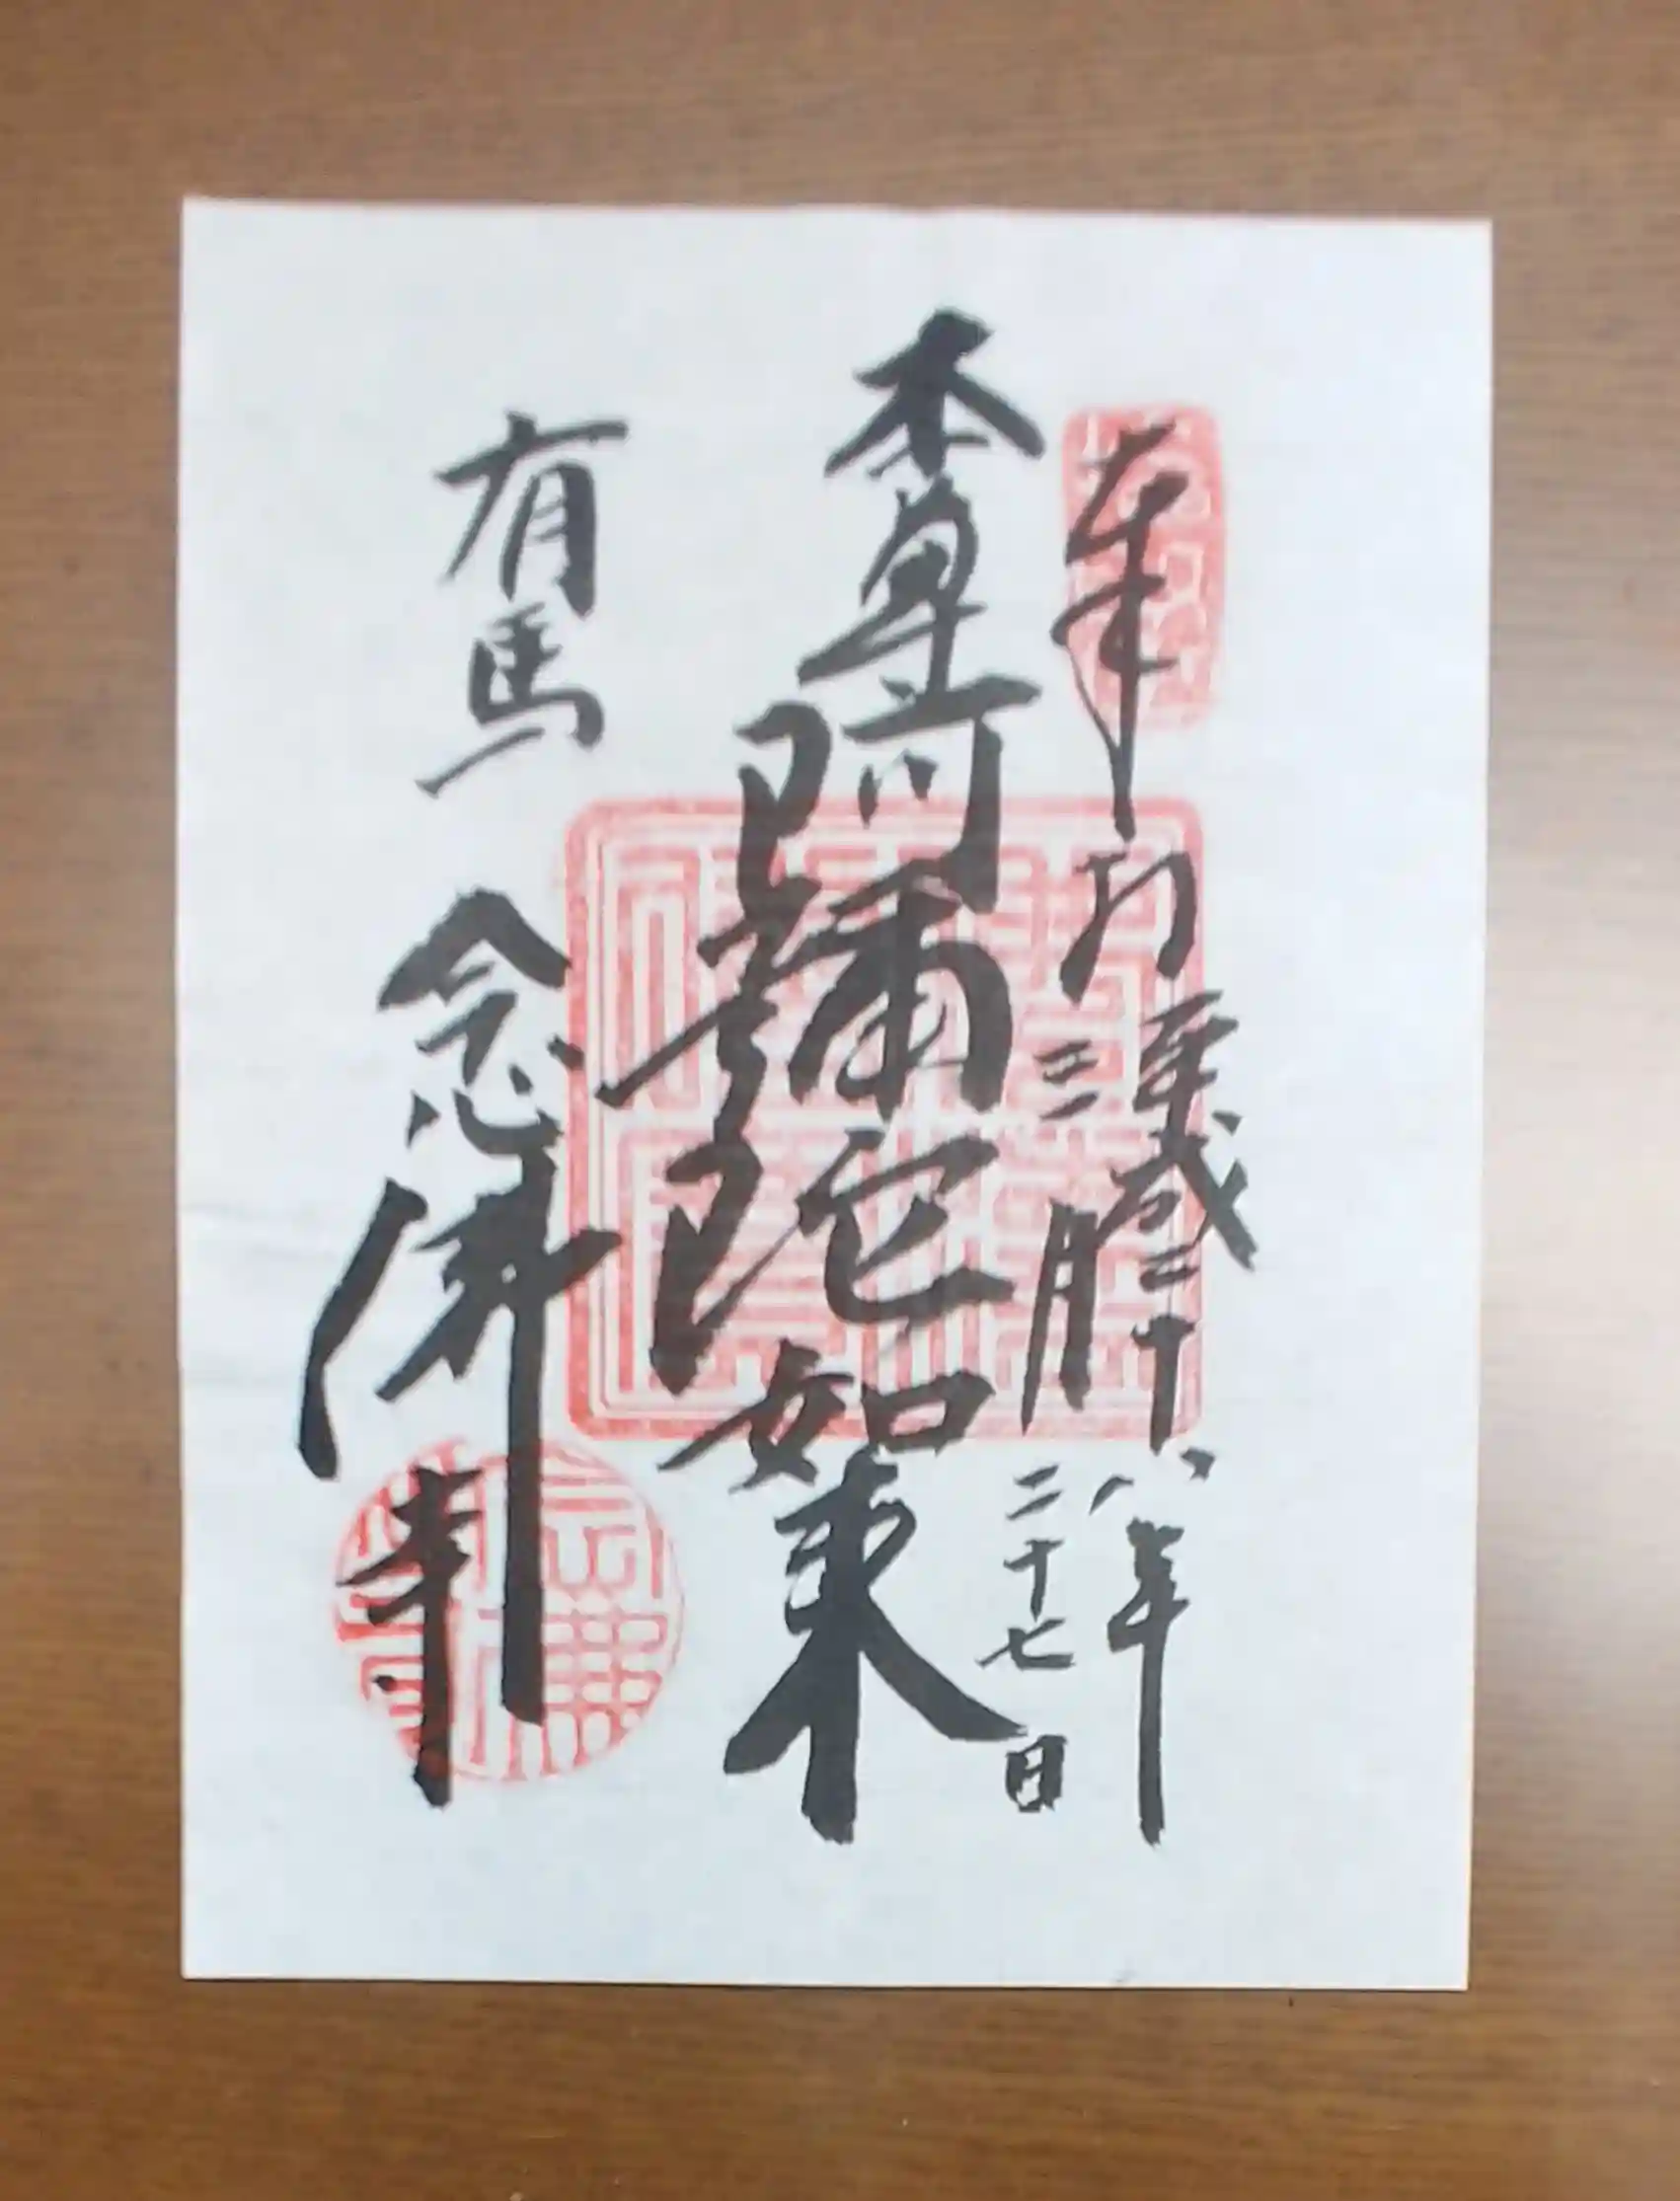 奉拝
平成二十八年
三月二十七日
本尊阿彌陀如来
有馬
念佛寺